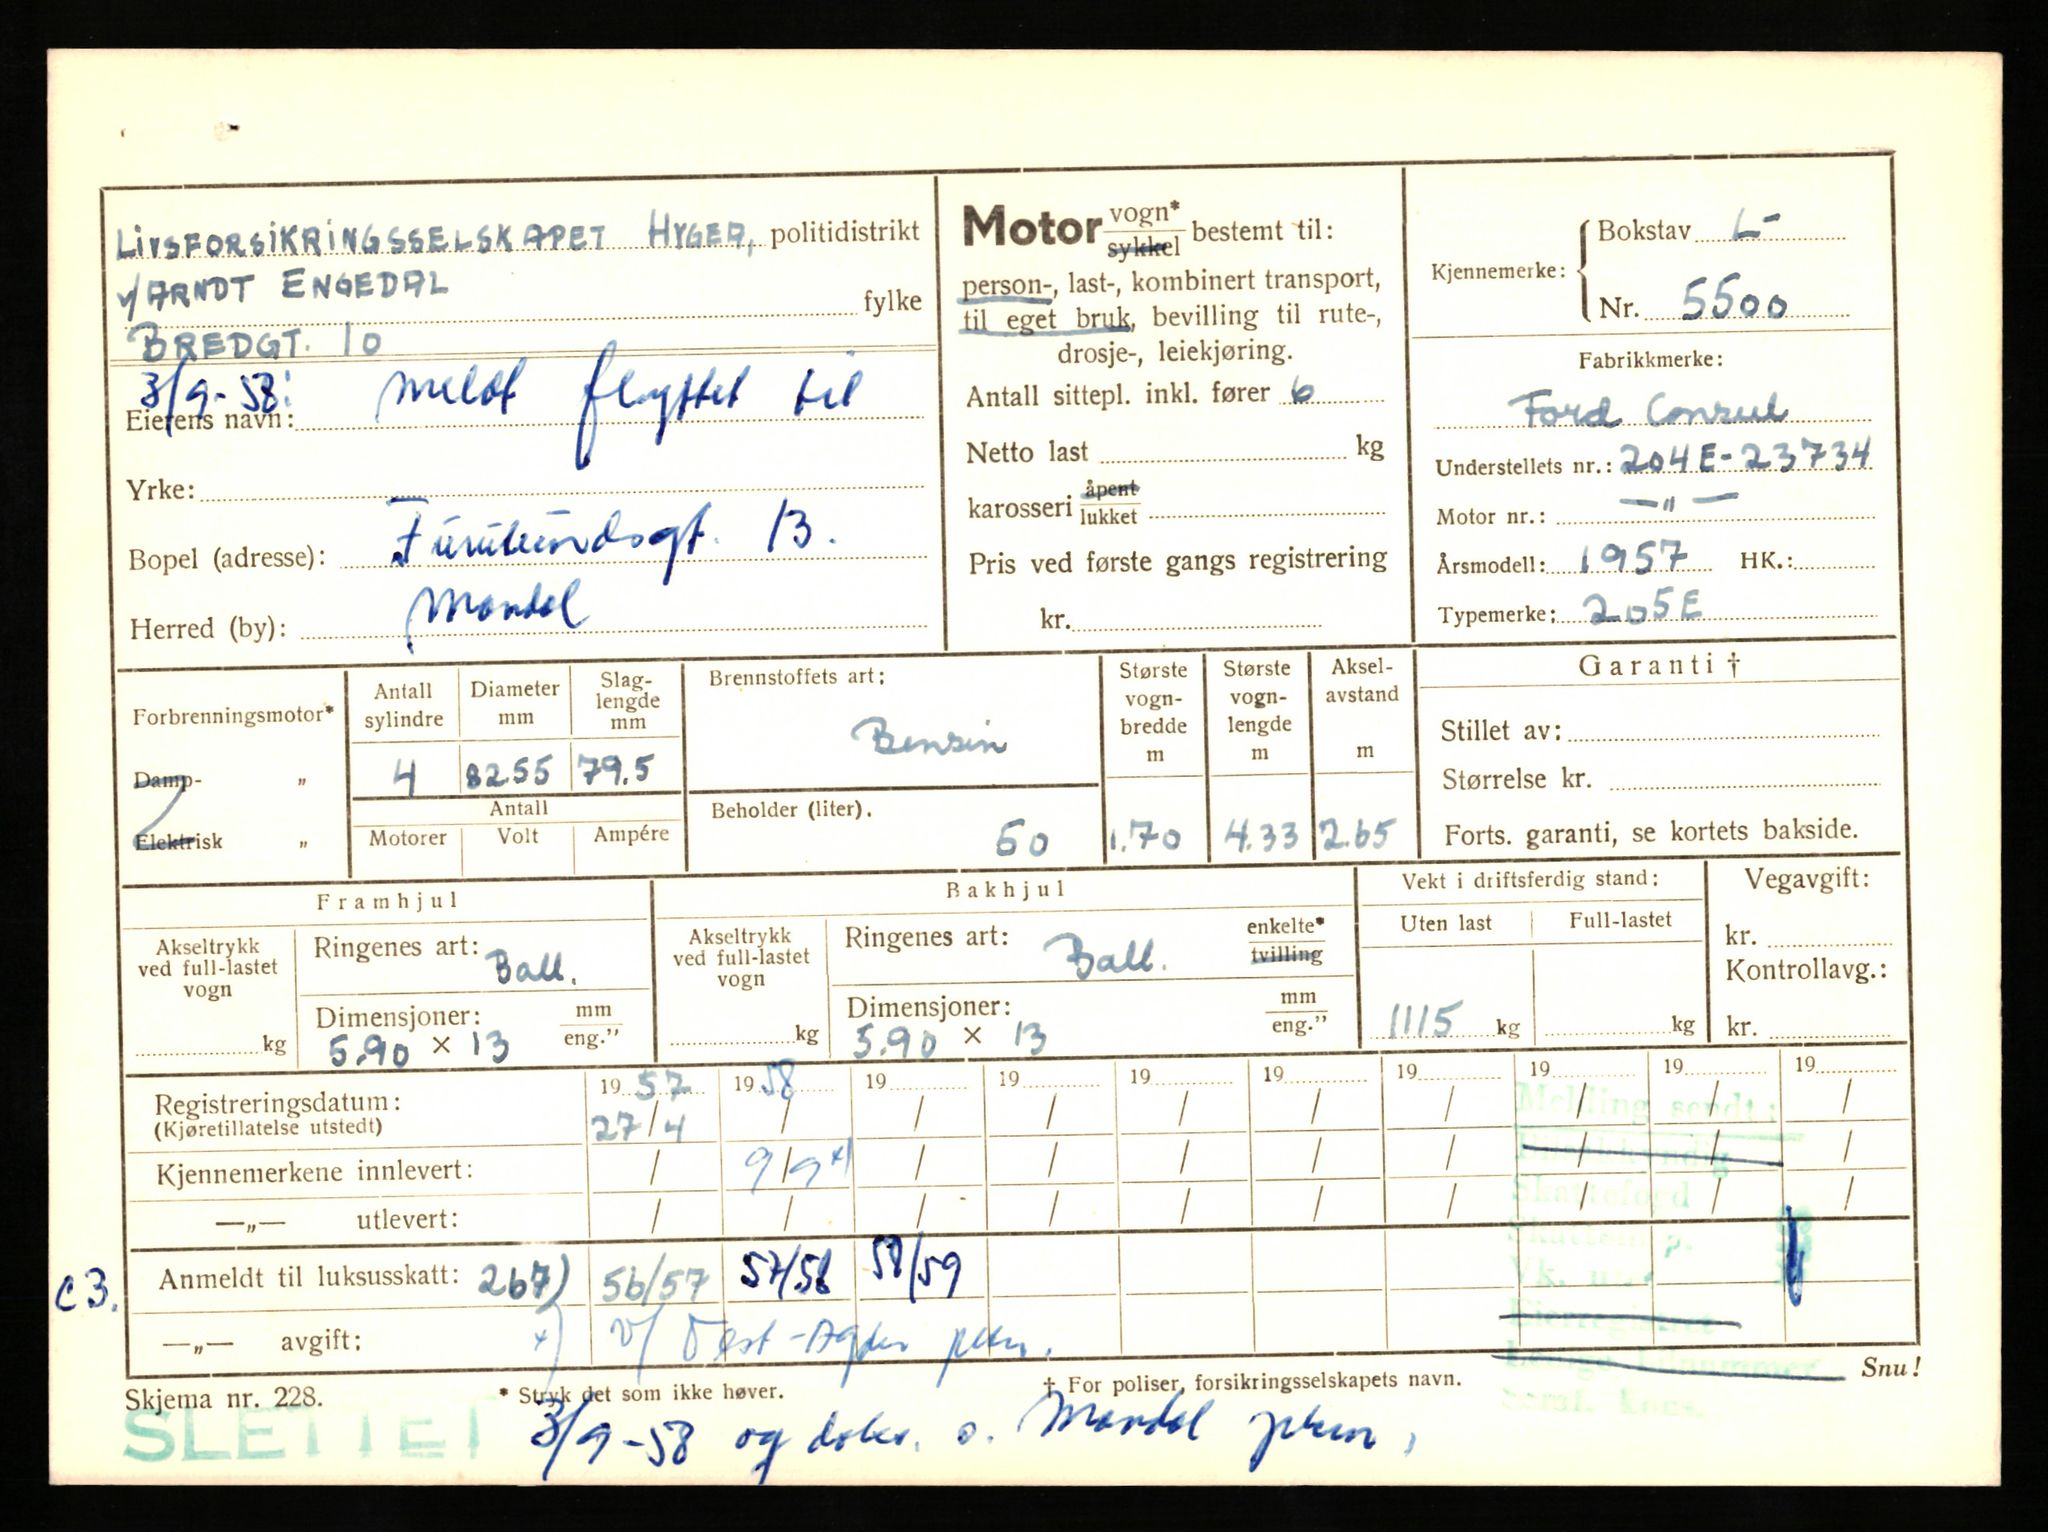 LIVSFORSIKRINGSSELSKAPET HYGEA, politidistrikt
v/ ARNDT ENGEDAL
fylke
BREDGT. 10
3/9-58: meldt flyttet til
Eierens navn:
Yrke:
Bopel (adresse): Furulundsgt. 13.
Herred (by): Mandal
Motor vogn* sykkel bestemt til:
person-, last-, kombinert transport,
til eget bruk, bevilling til rute-,
drosje-, leiekjøring.
Antall sittepl. inkl. fører 6
Netto last kg
karosseri åpent lukket
Pris ved første gangs registrering
kr.
Kjennemerke: Bokstav L-
Nr. 5500
Fabrikkmerke:
Ford Consul
Understellets nr.: 204E-23734
Motor nr.: —"—
Årsmodell: 1957 HK.:
Typemerke: 205E
Forbrenningsmotor*
Damp- „
Elektrisk „
Antall sylindre
Diameter mm
Slag-lengde mm
4 82.55 79.5
Antall
Motorer Volt Ampére
Brennstoffets art:
Bensin
Beholder (liter).
50
Største vogn-bredde m
1.70
Største vogn-lengde m
4.33
Aksel-avstand m
2.65
Garanti †
Stillet av:
Størrelse kr.
Forts. garanti, se kortets bakside.
Framhjul
Akseltrykk ved full-lastet vogn
kg
Ringenes art: Ball.
Dimensjoner: mm eng.”
5.90 x 13
Bakhjul
Akseltrykk ved full-lastet vogn
kg
Ringenes art: Ball. enkelte* tvilling
Dimensjoner: mm eng.”
5.90 x 13
Vekt i driftsferdig stand:
Uten last Full-lastet
1115 kg kg
Vegavgift:
kr.
Kontrollavg.:
kr.
19 57 19 58 19 19 19 19 19 19 19 19
Registreringsdatum: 27/4 / / / / / / / / /
(Kjøretillatelse utstedt)
Kjennemerkene innlevert: / 9/9 x) / / / / / / / /
—„— utlevert: / / / / / / / / / /
c3. Anmeldt til luksusskatt: 267) 56/57 57/58 58/59
—„— avgift: x) v/ Vest-Agder
Melding sendt:
Skattefogd
Vk.
Eierregistret
Ledige bilnummer
Skjema nr. 228.
* Stryk det som ikke høver.
† For poliser, forsikringsselskapets navn.
Snu!
SLETTET 3/9-58 og Mandal